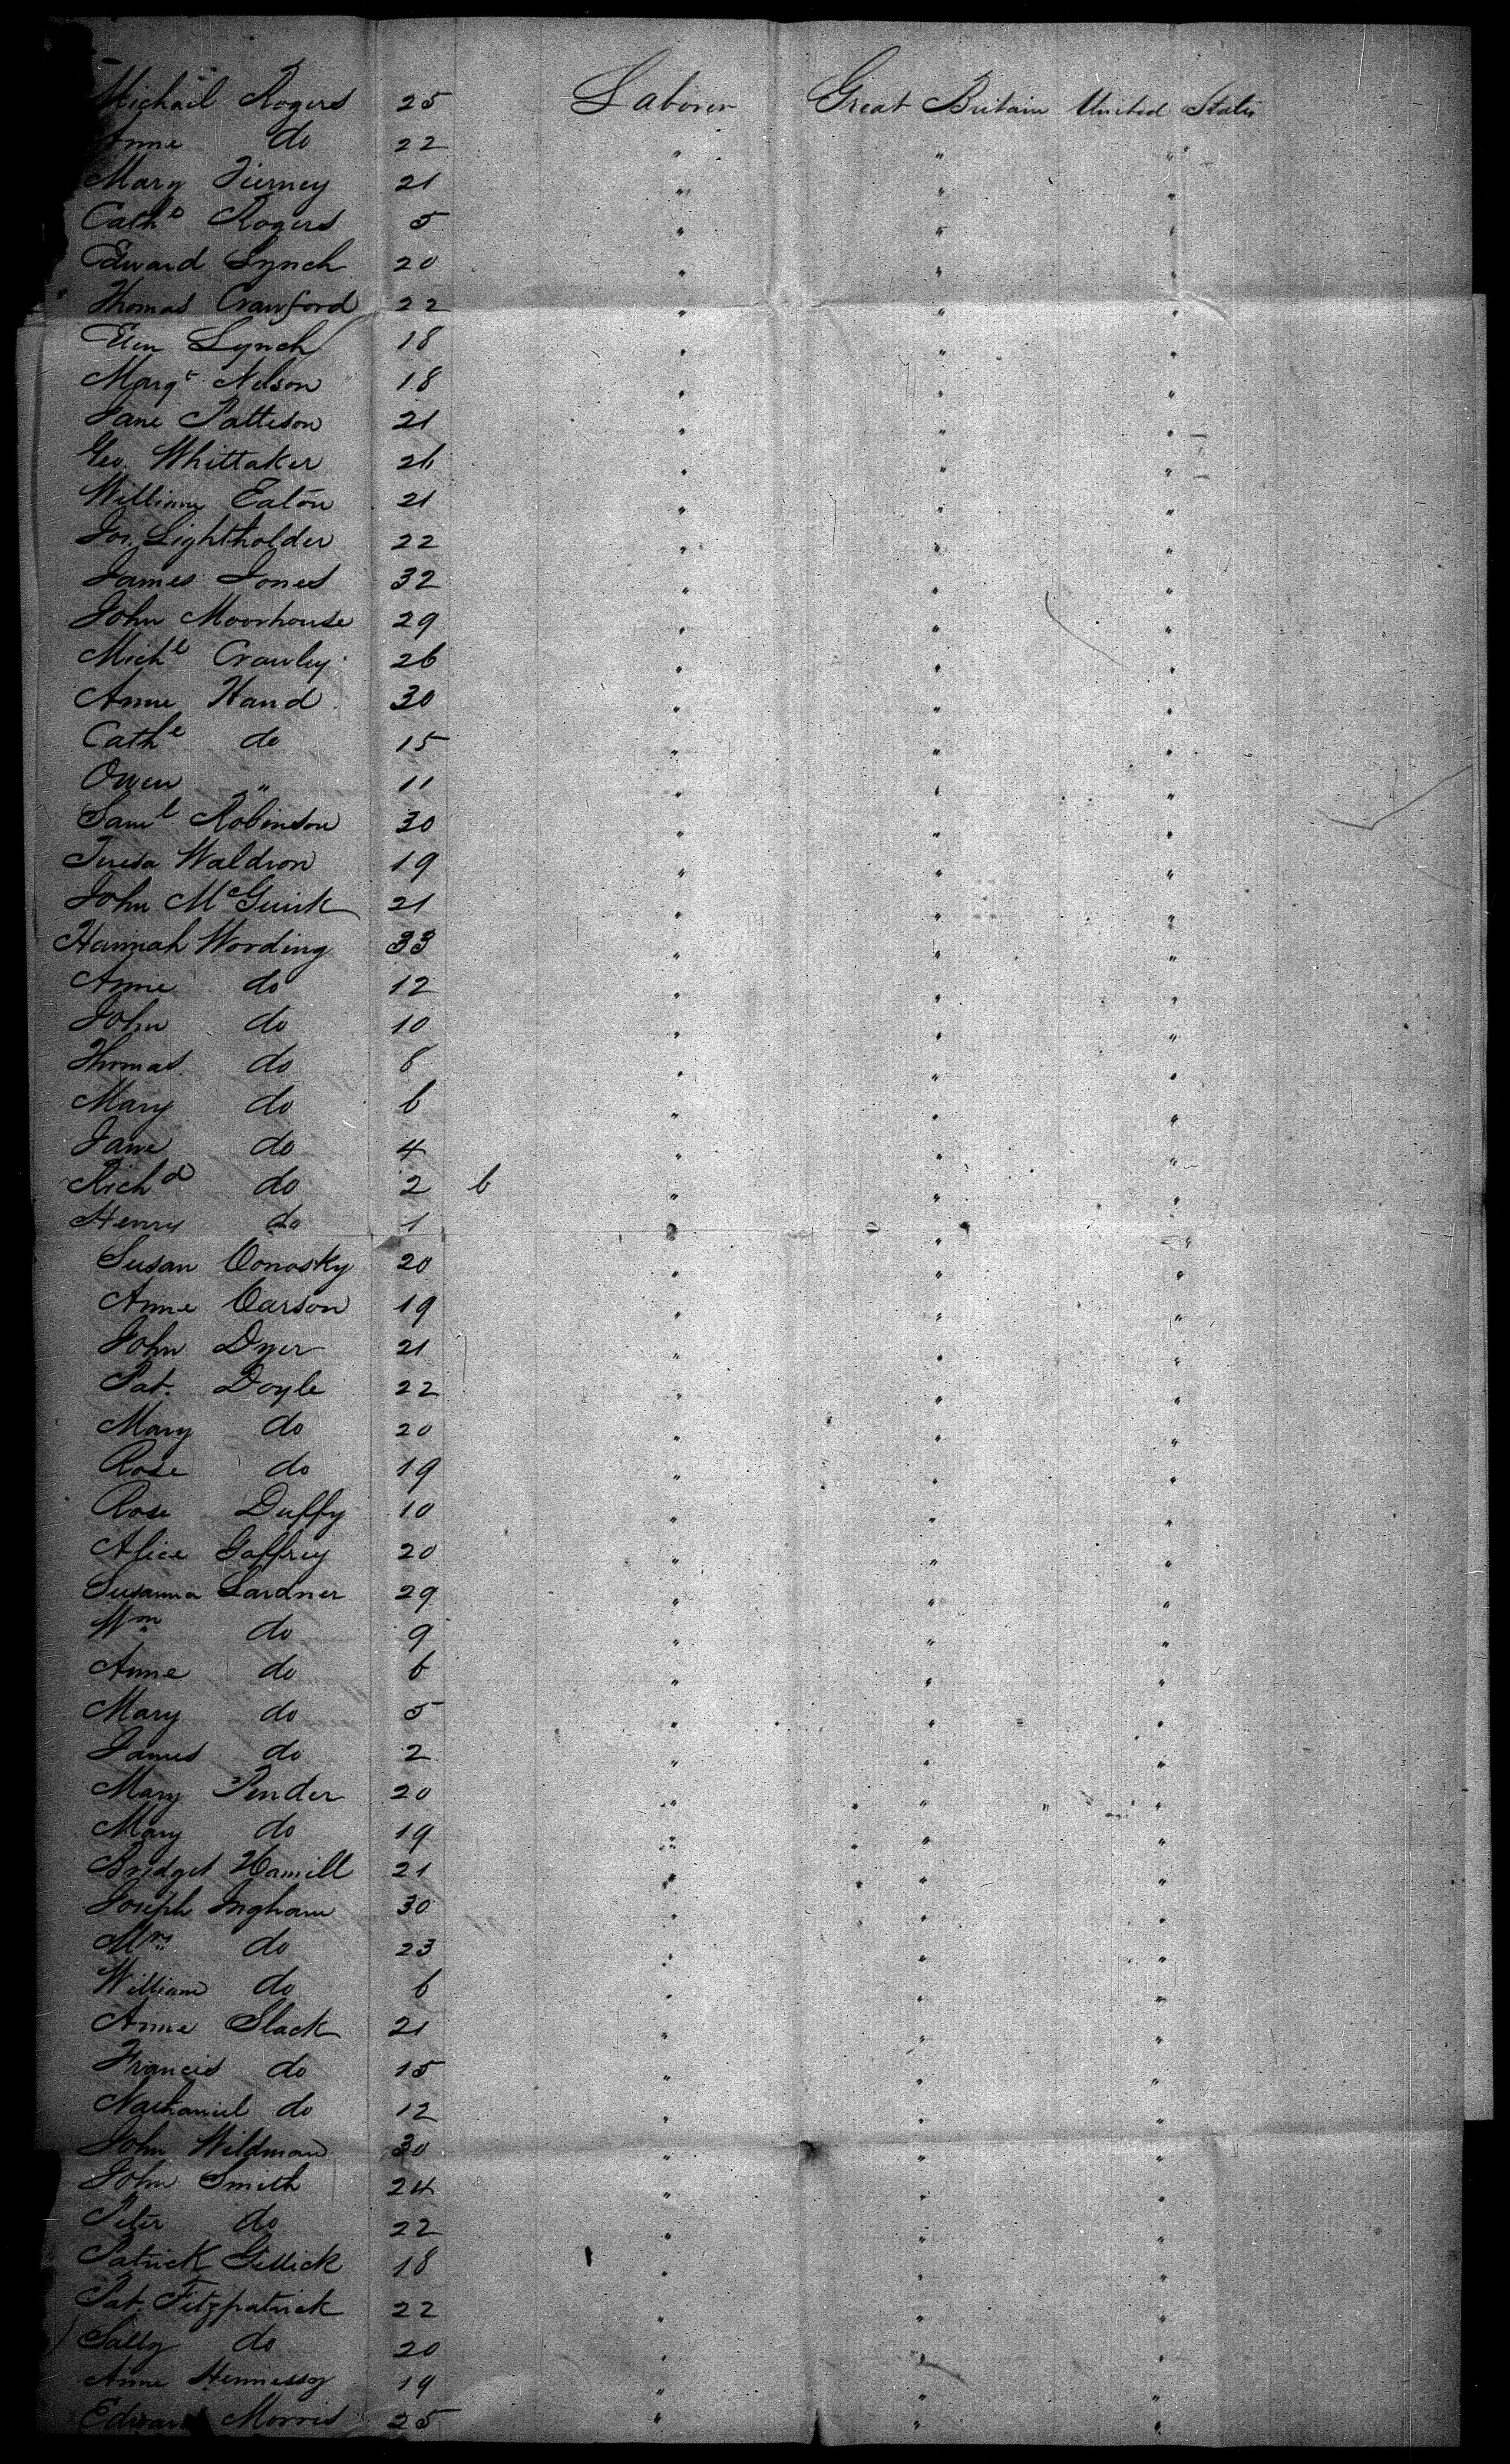 Michael Rogers 25 Laborer Great Britain United States
Anne do 22 " " "
Mary Tierney 21 " " "
Cathe Rogers 5 " " "
Edward Lynch 20 " " "
Thomas Crawford 22 " " "
Ellen Lynch 18 " " "
Margt Nelson 18 " " "
Jane Patteson 21 " " "
Geo. Whittaker 26 " " "
William Eaton 21 " " "
Jos. Lightholder 22 " " "
James Jones 32 " " "
John Moorhouse 29 " " "
Michl Crawley 26 " " "
Anne Hand 30 " " "
Cathe do 15 " " "
Owen " 11 " " "
Saml Robinson 30 " " "
Teresa Waldron 19 " " "
John McGuirk 21 " " "
Hannah Wording 33 " " "
Anne do 12 " " "
John do 10 " " "
Thomas do 8 " " "
Mary do 6 " " "
Jane do 4 " " "
Richd do 2 6 " " "
Henry do 1 " " "
Susan Conosky 20 " " "
Anne Carson 19 " " "
John Dyer 21 " " "
Pat. Doyle 22 " " "
Mary do 20 " " "
Rose do 19 " " "
Rose Duffy 10 " " "
Alice Gaffrey 20 " " "
Susanna Lardner 29 " " "
Wm do 9 " " "
Anne do 6 " " "
Mary do 5 " " "
James do 2 " " "
Mary Pender 20 " " "
Mary do 19 " " "
Bridget Hamill 21 " " "
Joseph Ingham 30 " " "
Mrs do 23 " " "
William do 6 " " "
Anne Slack 21 " " "
Francis do 15 " " "
Nathaniel do 12 " " "
John Wildman 30 " " "
John Smith 24 " " "
Peter do 22 " " "
Patrick Gellick 18 " " "
Pat. Fitzpatrick 22 " " "
Sally do 20 " " "
Anne Hennessy 19 " " "
Edward Morris 25 " " "